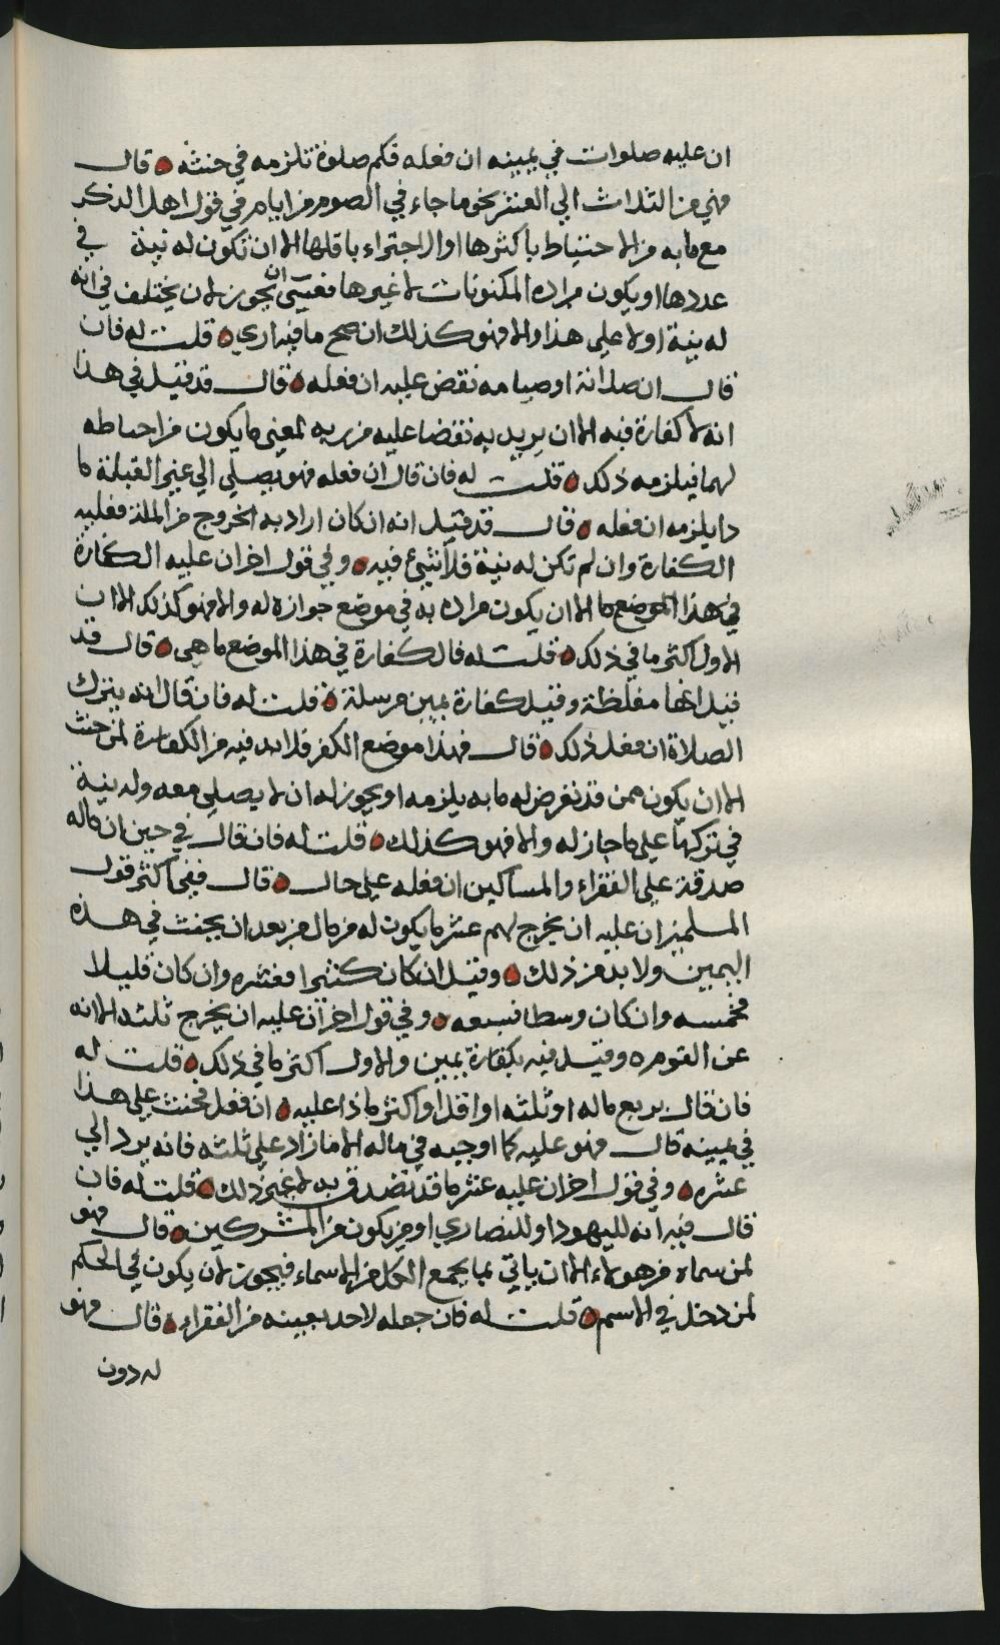 ان عليه صلوات في يمينه ان فعله فكم صلوة تلزمه في حنثه قال
فهي من الثلاث الى العشر نحو ما جاء في الصوم من ايام في قول اهل الذكر
مع ما به من الاحتياط باكثرها او الاجتزاء باقلها الا ان تكون له نية في
عددها او يكون مراده المكتوبات لا غيرها فعسى ان يجوز لان يختلف في انه
له نية اولا على هذا والا فهو كذلك ان صح ما فيه اري قلت له فان
قال ان صلاته او صيامه نقض عليه ان فعله قال قد قيل في هذا
انه لا كفارة فيه الا ان يريد به نقضا عليه من ربه لمعنى ما يكون من احباطه
لهما فيلزمه ذلك قلت له فان قال ان فعله فهو يصلي الى غير القبلة ما
ذا يلزمه ان فعله قال قد قيل انه ان كان اراد به الخروج من الملة فعليه
الكفارة وان لم تكن له نية فلا شيء فيه وفي قول اخر ان عليه الكفارة
في هذا الموضع ما الا ان يكون مراده به في موضع جوازه له والا فهو كذلك الا ان
الاول اكثر ما في ذلك قلت له فالكفارة في هذا الموضع ما هي قال قد
قيل انها مغلظة وقيل كفارة يمين مرسلة قلت له فان قال انه يترك
الصلاة ان فعل ذلك قال فهذا موضع الكفر فلا بد فيه من الكفارة لمن حنث
الا ان يكون ممن قد تعرض له ما به يلزمه او يجوز له ان لا يصلي معه وله نية
في تركها على ما جاز له والا فهو كذلك قلت له فان قال في حين ان ماله
صدقة على الفقراء والمساكين ان فعله على حال قال ففي اكثر قول
المسلمين ان عليه ان يخرج لهم عشر ما يكون له من مال من بعد ان يحنث في هذه
اليمين ولا بد من ذلك وقيل ان كان كثيرا فعشره وان كان قليلا
فخمسه وان كان وسطا فسبعه وفي قول اخر ان عليه ان يخرج ثلثه الا انه
عن القوم وقيل فيه بكفارة يمين والاول اكثر ما في ذلك قلت له
فان قال بربع ماله او ثلثه او اقل او اكثر ماذا عليه ان فعل فحنث على هذا
في يمينه قال فهو عليه كما اوجبه في ماله الا ما زاد على ثلثه فانه يرد الى
عشره وفي قول اخر ان عليه عشر ما قد تصدق به لا غير ذلك قلت له فان
قال فيه انه لليهود او للنصارى او من يكون من المشركين قال فهو
لمن سماه من هولاء الا ان ياتي بما يجمع الكل من الاسماء فيجوز لان يكون في الحكم
لمن دخل في الاسم قلت له فان جعله لاحد بعينه من الفقراء قال فهو
له دون